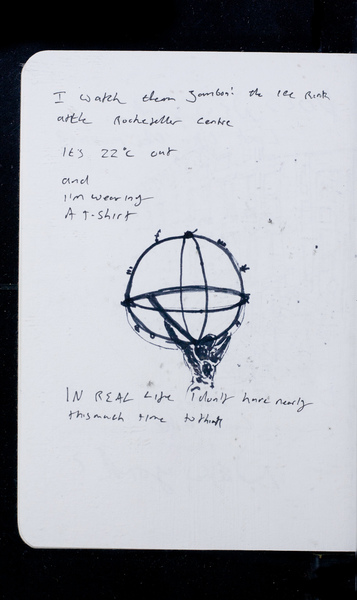 I watch them zamboni the ice Rink
at the Rockefeller centre
It's 22°C out
and
I'm wearing
A T-shirt
IN REAL Life I don't have nearly
this much time to think